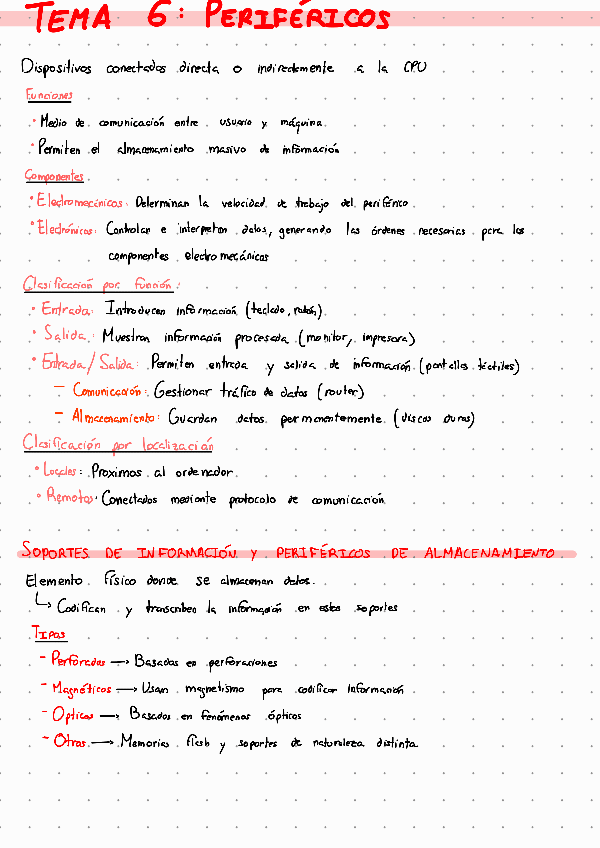 TEMA 6: PERIFÉRICOS
Dispositivos conectados directa o indirectamente a la CPU
Funciones
• Medio de comunicación entre usuario y máquina.
• Permiten el almacenamiento masivo de información
Componentes
• Electromecánicos: Determinan la velocidad de trabajo del periférico.
• Electrónicos: Controlan e interpretan datos, generando las órdenes necesarias para los
componentes electromecánicos
Clasificación por función:
• Entrada: Introducen información (teclado, ratón).
• Salida: Muestran información procesada (monitor, impresora)
• Entrada/Salida: Permiten entrada y salida de información (pantallas táctiles)
– Comunicación: Gestionar tráfico de datos (router)
– Almacenamiento: Guardan datos permanentemente (discos duros)
Clasificación por localización
• Locales: Proximos al ordenador.
• Remotos: Conectados mediante protocolo de comunicación
SOPORTES DE INFORMACIÓN Y PERIFÉRICOS DE ALMACENAMIENTO
Elemento físico donde se almacenan datos.
↳ Codifican y transcriben la información en estos soportes
TIPOS
- Perforados → Basados en perforaciones
- Magnéticos → Usan magnetismo para codificar información
- Opticos → Basados en fenómenos ópticos
- Otros → Memorias flash y soportes de naturaleza distinta